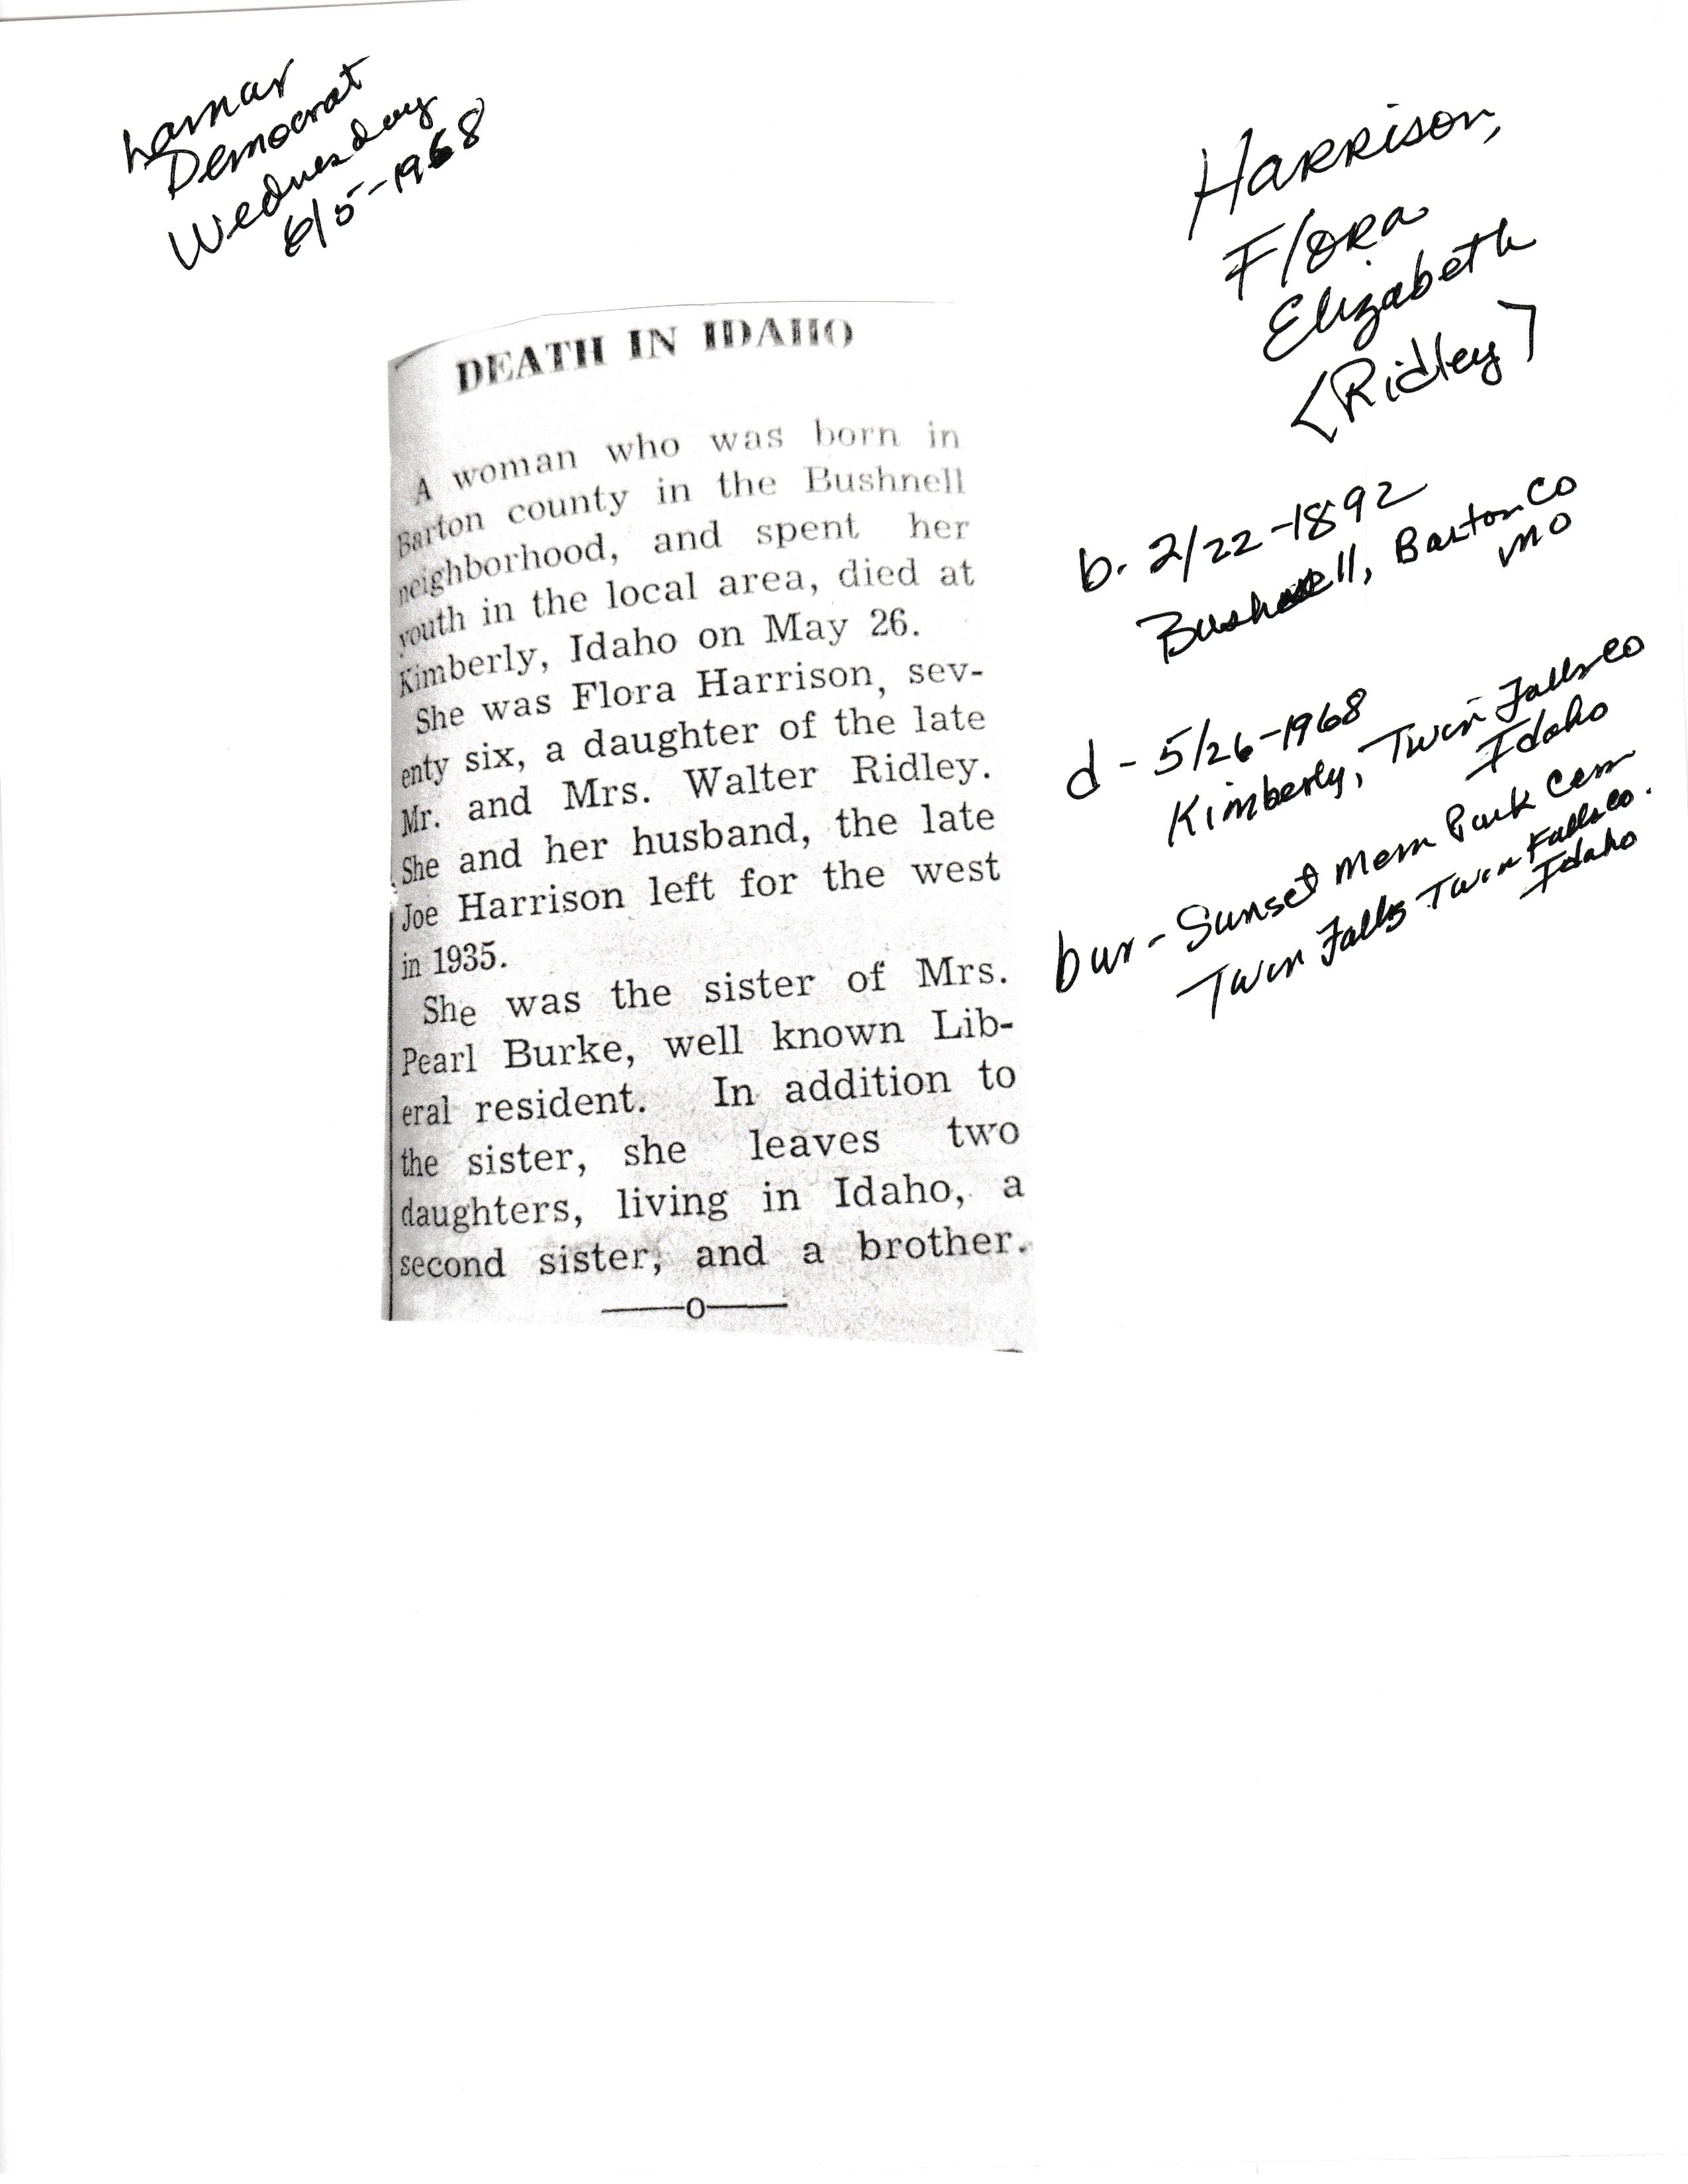 Lamar
Democrat
Wednesday
6/5-1968
Harrison,
Flora
Elizabeth
<Ridley>
DEATH IN IDAHO
A woman who was born in
Barton county in the Bushnell
neighborhood, and spent her
youth in the local area, died at
Kimberly, Idaho on May 26.
She was Flora Harrison, sev-
enty six, a daughter of the late
Mr. and Mrs. Walter Ridley.
She and her husband, the late
Joe Harrison left for the west
in 1935.
She was the sister of Mrs.
Pearl Burke, well known Lib-
eral resident. In addition to
the sister, she leaves two
daughters, living in Idaho, a
second sister, and a brother.
—o—
b. 2/22-1892
Bushnell, Barton Co
MO
d - 5/26-1968
Kimberly, Twin Falls Co
Idaho
bur - Sunset Mem Park Cem
Twin Falls Twin Falls Co.
Idaho